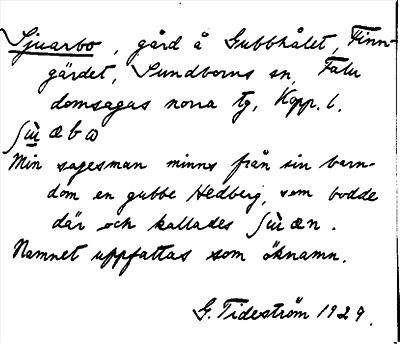 Sjuarbo, gård å Gubbhålet, Finn-
gärdet, Sundborns sn, Falu
domsagas norra tg, Kopp. l.
ʃɯ̀æbω
Min sagesman minns från sin barn-
dom en gubbe Hedberg, som bodde
där och kallades ʃɯ̀æn.
Namnet uppfattas som öknamn.
G. Tideström 1929.